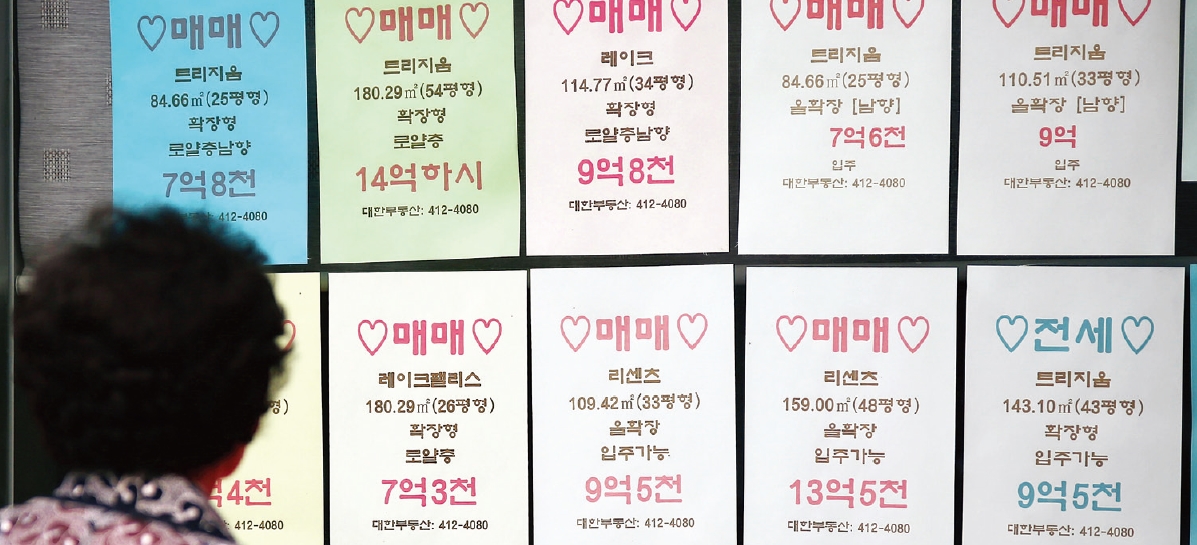 ♡매매♡
트리지움
84.66㎡(25평형)
확장형
로얄층남향
7억8천
412-4080
♡매매♡
트리지움
180.29㎡(54평형)
확장형
로얄층
14억하시
대한부동산: 412-4080
♡매매♡
레이크
114.77㎡(34평형)
확장형
로얄층남향
9억8천
대한부동산: 412-4080
♡매매♡
트리지움
84.66㎡(25평형)
올확장 [남향]
7억6천
입주
대한부동산: 412-4080
♡매매♡
트리지움
110.51㎡(33평형)
올확장 [남향]
9억
입주
대한부동산: 412-4080
♡
형)
억4천
412-4080
♡매매♡
레이크팰리스
180.29㎡(26평형)
확장형
로얄층
7억3천
대한부동산: 412-4080
♡매매♡
리센츠
109.42㎡(33평형)
올확장
입주가능
9억5천
대한부동산: 412-4080
♡매매♡
리센츠
159.00㎡(48평형)
올확장
입주가능
13억5천
대한부동산: 412-4080
♡전세♡
트리지움
143.10㎡(43평형)
확장형
입주가능
9억5천
대한부동산: 412-4080